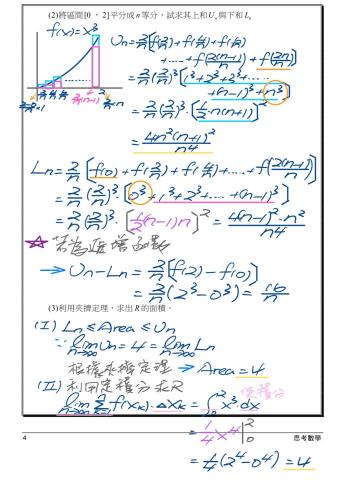 (2)將區間[0，2]平分成 n 等分，試求其上和 Uₙ 與下和 Lₙ
f(x)=x³
Un = 2/n [f(2/n)+f(4/n)+f(6/n)
+....+f(2(n-1)/n)+f(2n/n)]
= 2/n (2/n)³ [1³+2³+3³+......
+(n-1)³+n³]
= 2/n (2/n)³ [1/2 n(n+1)]²
= 4n²(n+1)²/n4
Ln = 2/n [f(0)+f(2/n)+f(4/n)+....+f(2(n-1)/n)]
= 2/n (2/n)³ [0³+1³+2³+....+(n-1)³]
= 2/n (2/n)³ [1/2 (n-1)n]² = 4(n-1)²·n²/n4
☆ 若為遞增函數
→ Un-Ln = 2/n [f(2)-f(0)]
= 2/n (2³-0³) = 16/n
(3)利用夾擠定理，求出 R 的面積。
(I) Ln ≤ Area ≤ Un
∵ lim n→∞ Un = 4 = lim n→∞ Ln
根據夾擠定理 → Area = 4
(II) 利用定積分求R
定積分
lim n→∞ Σ f(xₖ)·Δxₖ = ∫₀² x³·dx
= 1/4 x⁴ |²₀
= 1/4 (2⁴-0⁴) = 4
4
思考數學